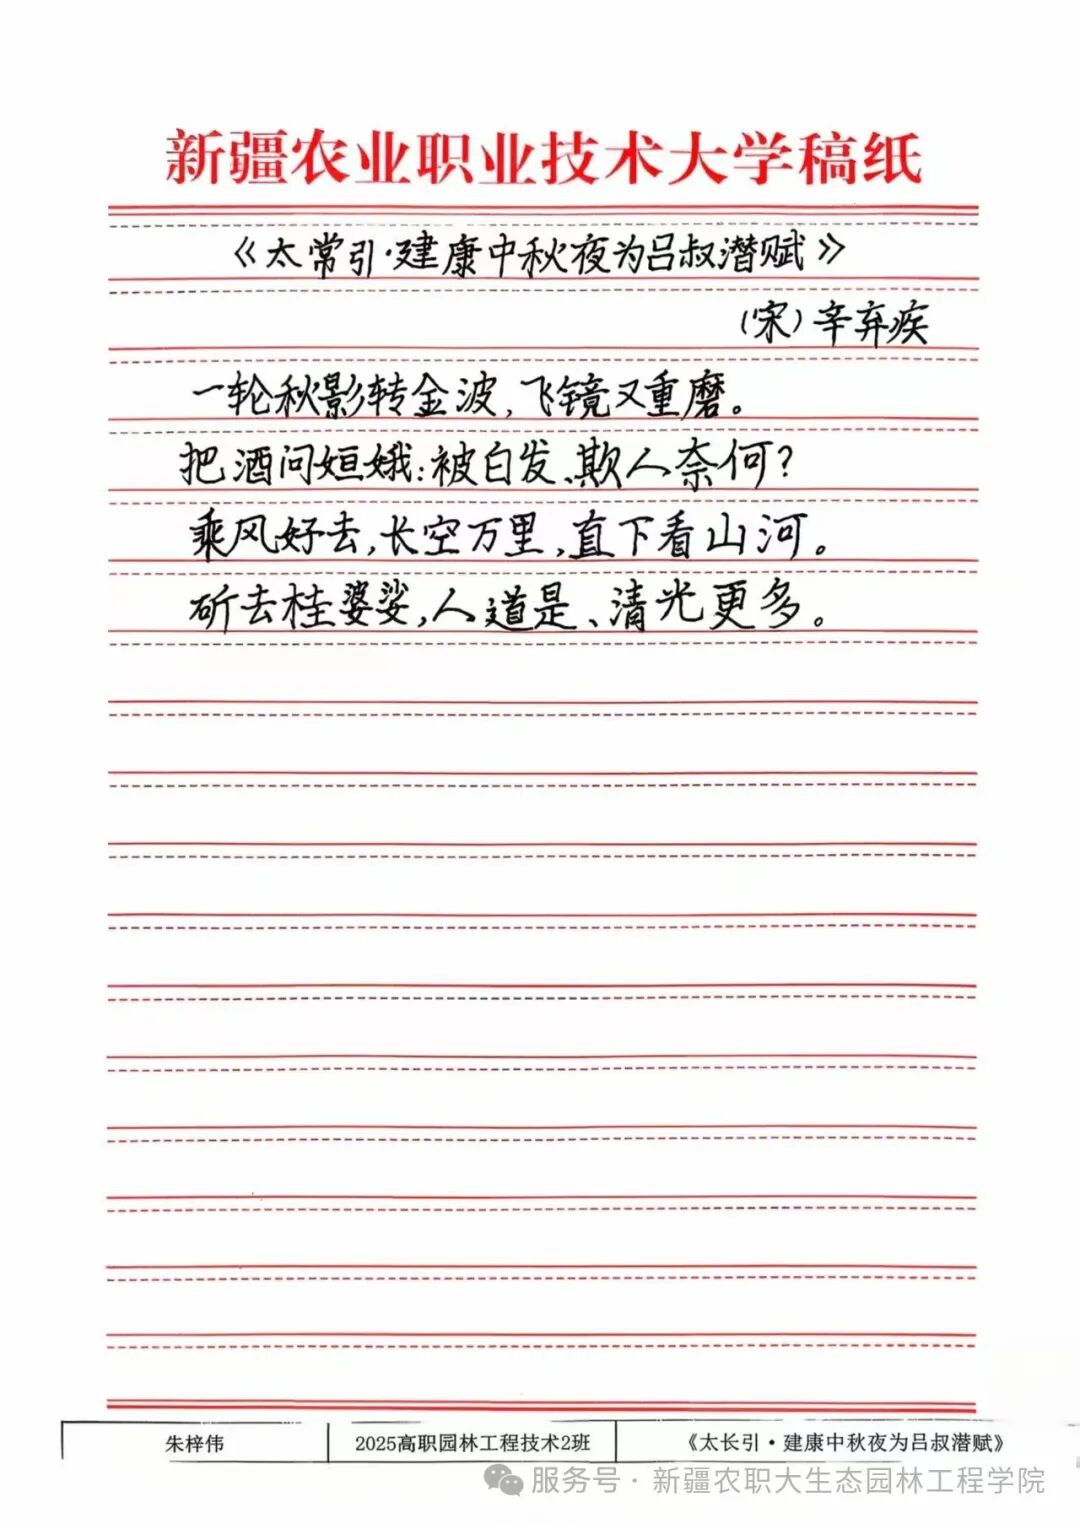 新疆农业职业技术大学稿纸
《太常引·建康中秋夜为吕叔潜赋》
（宋）辛弃疾
一轮秋影转金波，飞镜又重磨。
把酒问姮娥：被白发、欺人奈何？
乘风好去，长空万里，直下看山河。
斫去桂婆娑，人道是、清光更多。
朱梓伟
2025高职园林工程技术2班
《太长引·建康中秋夜为吕叔潜赋》
服务号·新疆农职大生态园林工程学院